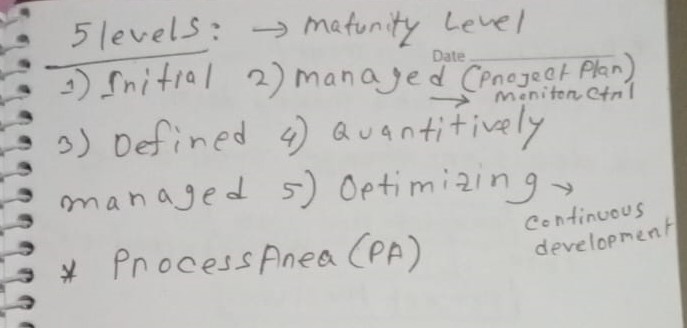 5 levels: → Maturity Level
Date
1) Initial 2) managed (Project Plan)
→ Moniton Ctrl
3) Defined 4) Quantitively
managed 5) Optimizing →
continuous
development
* Process Area (PA)